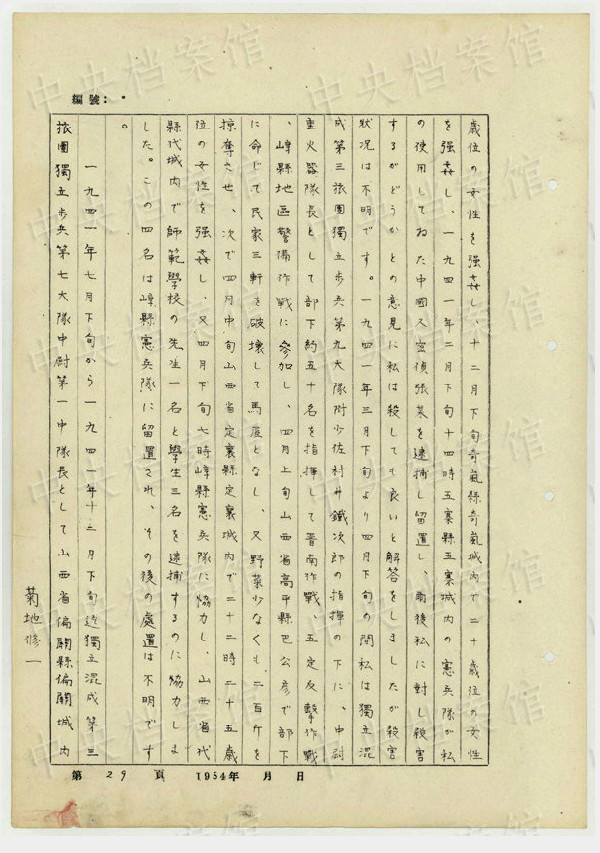 編號：
歳位の女性を強姦し、十二月下旬奇氣縣奇氣城内で二十歳位の女性
を強姦し、一九四一年二月下旬十四時五寨縣五寨城内の憲兵隊が私
の使用してゐた中國人密偵張某を逮捕し留置し、前後私に対し殺害
するがどうかとの意見に私は殺しても良いと解答をしましたが殺害
狀況は不明です。一九四一年三月下旬より四月下旬の間私は獨立混
成第三旅團獨立歩兵第九大隊附少佐村井鐵次郎の指揮の下に、中尉
重火器隊長として部下約五十名を指揮して晋南作戰、五定反擊作戰
、崞縣地區警備作戰に参加し、四月上旬山西省高平縣巴公彦で部下
に命じて民家三軒を破壊して馬屋となし、又野菜少なくも二百斤を
掠奪させ、次で四月中旬山西省定襄縣定襄城内で二十二時二十五歳
位の女性を強姦し、又四月下旬七時崞縣憲兵隊に協力し、山西省代
縣代城内で師範學校の先生一名と學生三名を逮捕するのに協力しま
した。この四名は崞縣憲兵隊に留置され、その後の處置は不明です
。
一九四一年七月下旬から一九四一年十二月下旬迄獨立混成第三
旅團獨立歩兵第七大隊中尉第一中隊長として山西省偏關縣偏關城内
菊地修一
第 29 頁 1954年 月 日
中央档案馆